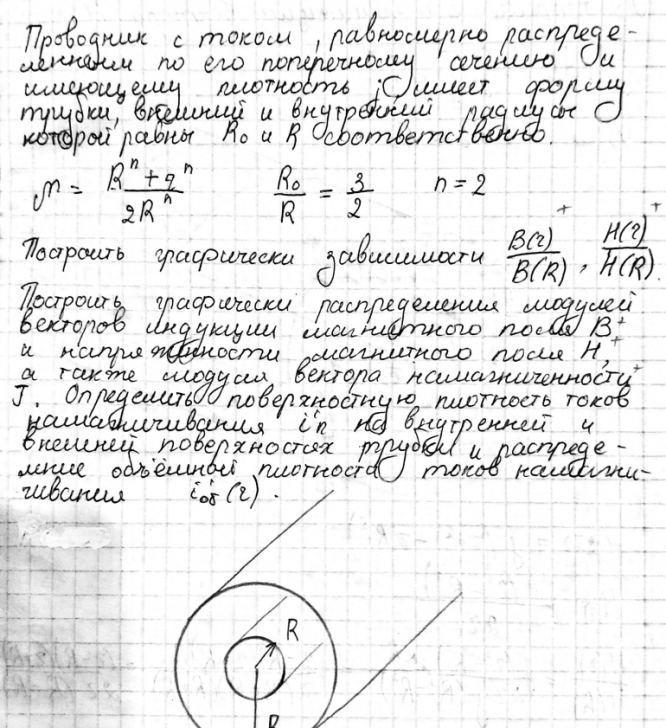 Проводник с током, равномерно распреде-
ленным по его поперечному сечению и
имеющему плотность j, имеет форму
трубки, внешний и внутренний радиусы
которой равны R₀ и R соответственно.
μ = (Rⁿ + rⁿ) / (2Rⁿ)   R₀/R = 3/2   n = 2
Построить графически зависимости B(r)⁺/B(R), H(r)⁺/H(R).
Построить графически распределения модулей
векторов индукции магнитного поля B⁺
и напряженности магнитного поля H,⁺
а также модуля вектора намагниченности⁺
J. Определить поверхностную плотность токов
намагничивания i'п на внутренней и
внешней поверхностях трубки и распреде-
ление объёмной плотности токов намагни-
чивания i'об (r).
R
R